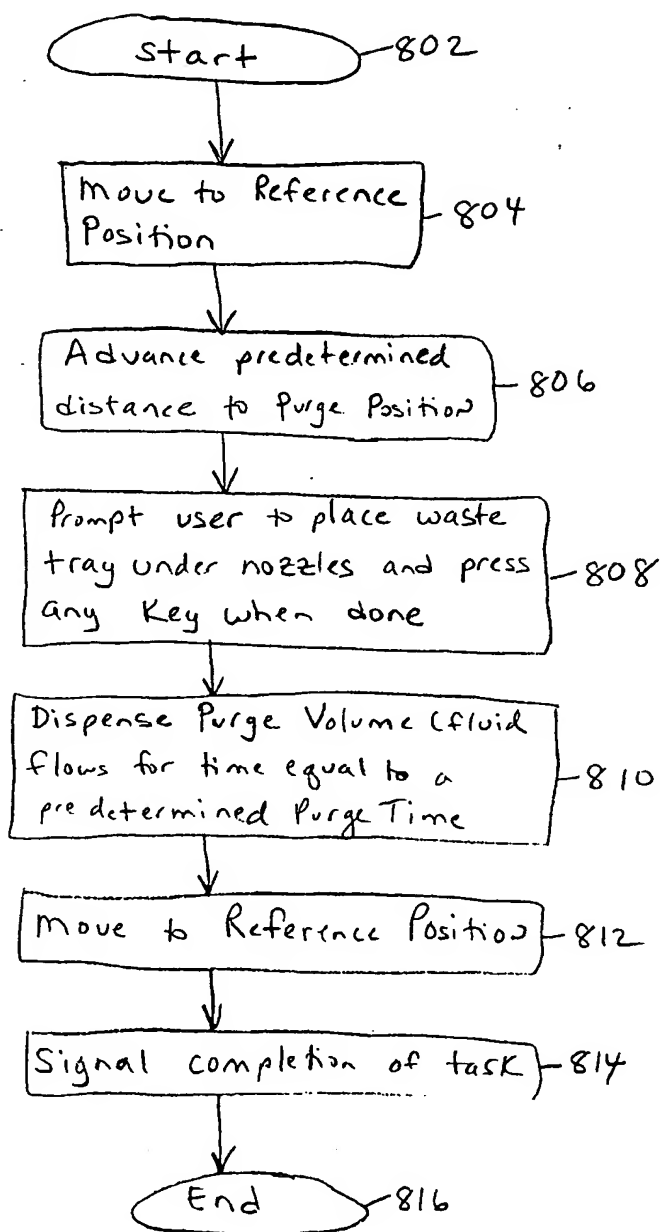 start
802
Move to Reference
Position
804
Advance predetermined
distance to Purge Position
806
Prompt user to place waste
tray under nozzles and press
any Key when done
808
Dispense Purge Volume (fluid
flows for time equal to a
predetermined Purge Time
810
Move to Reference Position
812
Signal completion of task
814
End
816